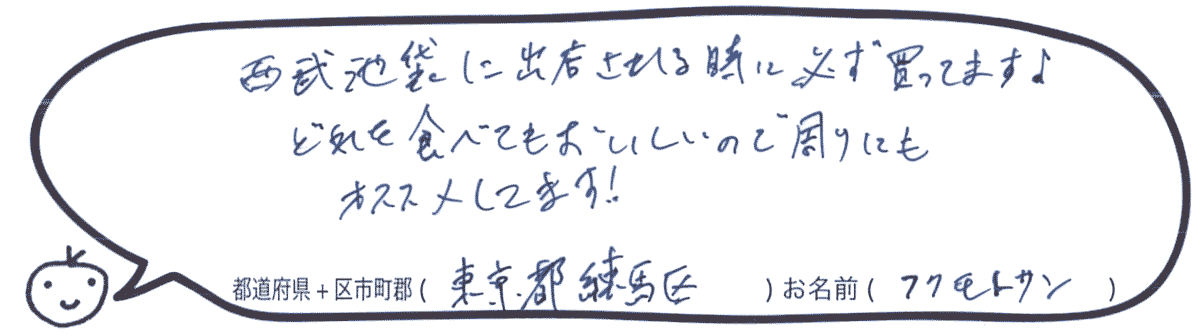 西武池袋に出店される時に必ず買ってます♪
どれを食べてもおいしいので周りにも
オススメしてます!
都道府県+区市町郡(東京都練馬区)お名前(フクモトサン)